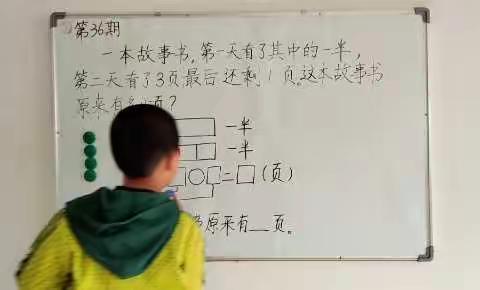 第36期
一本故事书,第一天看了其中的一半,
第二天看了3页,最后还剩1页。这本故事书
原来有 页?
一半
一半
○ = □(页)
原来有__页。